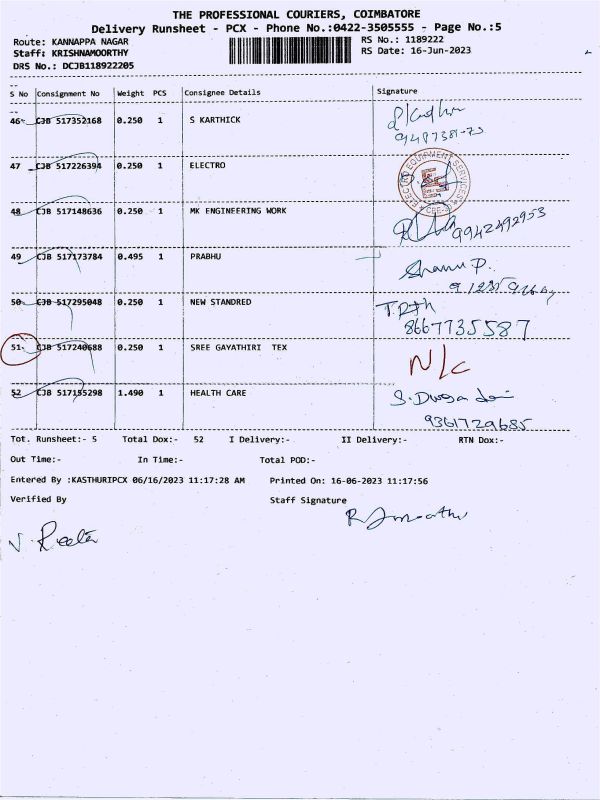 THE PROFESSIONAL COURIERS, COIMBATORE
Delivery Runsheet - PCX - Phone No.:0422-3505555 - Page No.:5
Route: KANNAPPA NAGAR RS No.: 1189222
Staff: KRISHNAMOORTHY RS Date: 16-Jun-2023
DRS No.: DCJB118922205
S No Consignment No Weight PCS Consignee Details Signature
46 CJB 517352168 0.250 1 S KARTHICK
47 CJB 517226394 0.250 1 ELECTRO
ELECTRO EQUIPMENT SERVICES
48 CJB 517148636 0.250 1 MK ENGINEERING WORK
9942492953
49 CJB 517173784 0.495 1 PRABHU
50 CJB 517295048 0.250 1 NEW STANDRED
8667735587
51 CJB 517240688 0.250 1 SREE GAYATHIRI TEX N/C
52 CJB 517155298 1.490 1 HEALTH CARE
9361729685
Tot. Runsheet:- 5 Total Dox:- 52 I Delivery:- II Delivery:- RTN Dox:-
Out Time:- In Time:- Total POD:-
Entered By :KASTHURIPCX 06/16/2023 11:17:28 AM Printed On: 16-06-2023 11:17:56
Verified By Staff Signature